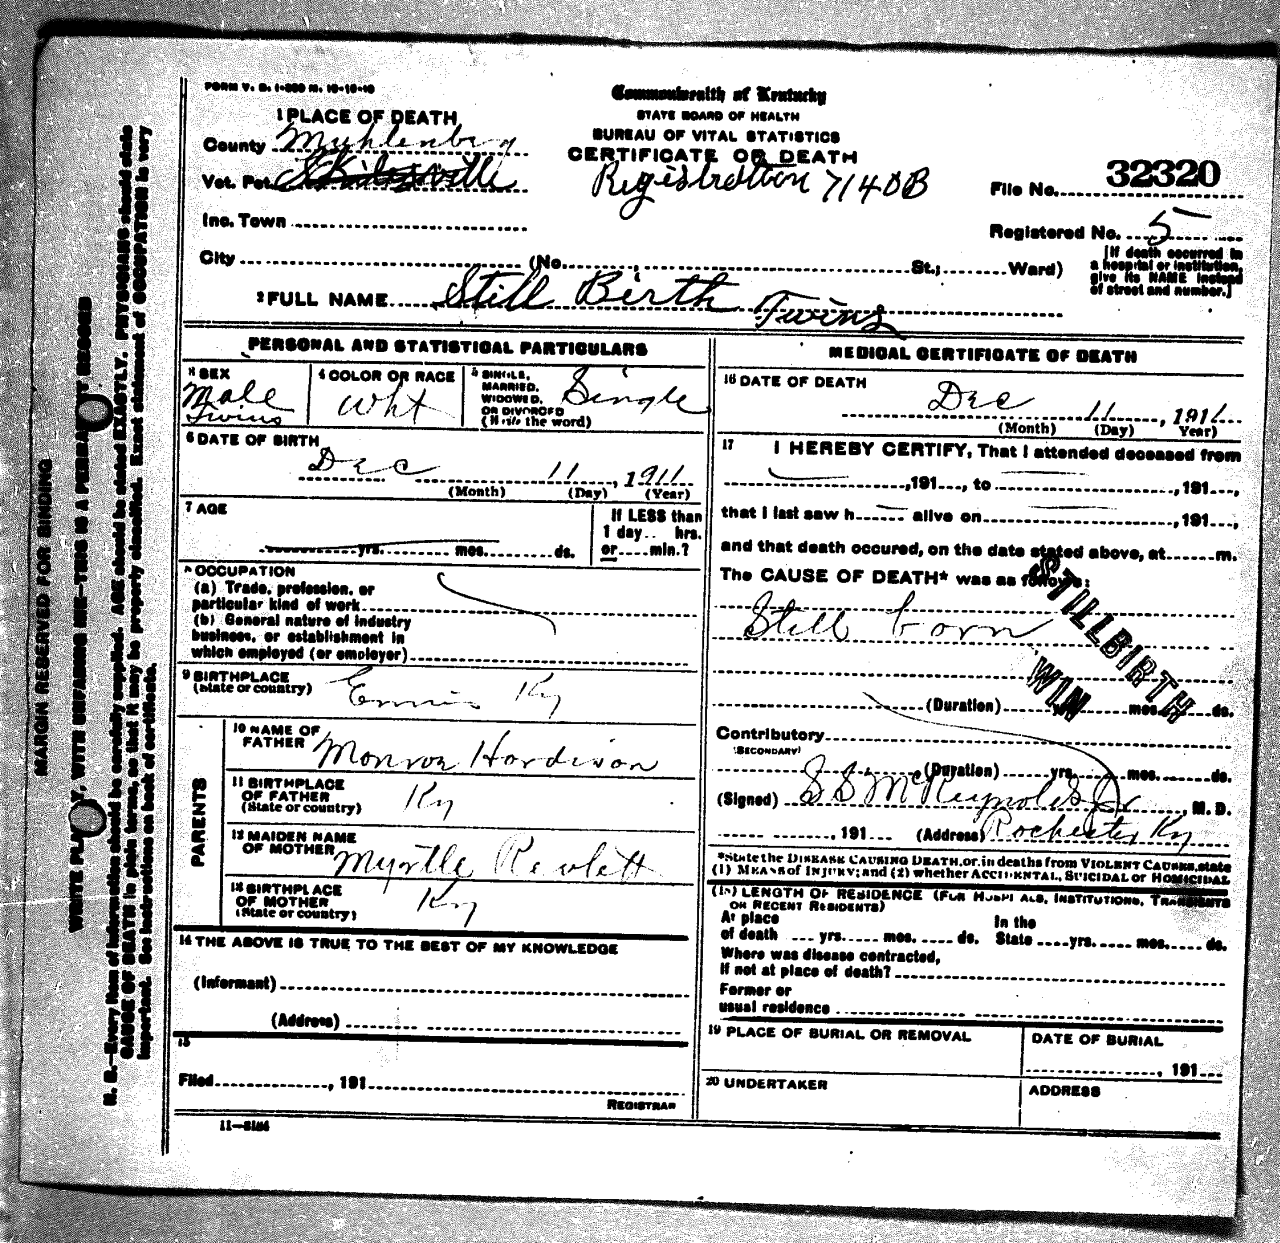 FORM V. S. 1-300 M. 10-10-10
Commonwealth of Kentucky
STATE BOARD OF HEALTH
BUREAU OF VITAL STATISTICS
CERTIFICATE OF DEATH
Registration 7140B
File No. 32320
Registered No. 5
[If death occurred in
a hospital or institution,
give its NAME instead
of street and number.]
1 PLACE OF DEATH
County Muhlenberg
Vot. Pct.
Inc. Town
City (No. St.; Ward)
2 FULL NAME Still Birth Twins
PERSONAL AND STATISTICAL PARTICULARS
3 SEX
Male
Twins
4 COLOR OR RACE
Wht
5 SINGLE,
MARRIED,
WIDOWED,
OR DIVORCED
(Write the word)
Single
6 DATE OF BIRTH
Dec 11, 1911
(Month) (Day) (Year)
7 AGE
yrs. mos. ds.
If LESS than
1 day.. hrs.
or....min.?
8 OCCUPATION
(a) Trade, profession, or
particular kind of work
(b) General nature of industry
business, or establishment in
which employed (or employer)
9 BIRTHPLACE
(State or country)
Ennis Ky
PARENTS
10 NAME OF
FATHER Monroe Hardison
11 BIRTHPLACE
OF FATHER
(State or country)
Ky
12 MAIDEN NAME
OF MOTHER Myrtle Rewlett
13 BIRTHPLACE
OF MOTHER
(State or country)
Ky
14 THE ABOVE IS TRUE TO THE BEST OF MY KNOWLEDGE
(Informant)
(Address)
15
Filed, 191
REGISTRAR
MEDICAL CERTIFICATE OF DEATH
16 DATE OF DEATH
Dec 11, 1911
(Month) (Day) Year)
17 I HEREBY CERTIFY, That I attended deceased from
,191...., to ,191....,
that I last saw h alive on ,191....,
and that death occured, on the date stated above, at......m.
The CAUSE OF DEATH* was as follows:
Still born
STILLBIRTH
WIN
(Duration) yrs. mos. ds.
Contributory
(SECONDARY)
(Duration) yrs. mos. ds.
(Signed) S S McReynolds Jr, M. D.
, 191 (Address) Rochester Ky
*State the DISEASE CAUSING DEATH, or, in deaths from VIOLENT CAUSES, state
(1) MEANS of INJURY; and (2) whether ACCIDENTAL, SUICIDAL or HOMICIDAL
(18) LENGTH OF RESIDENCE (FOR HOSPITALS, INSTITUTIONS, TRANSIENTS
OR RECENT RESIDENTS)
At place
of death .... yrs...... mos. .... ds.
In the
State ....yrs..... mos..... ds.
Where was disease contracted,
If not at place of death?
Former or
usual residence
19 PLACE OF BURIAL OR REMOVAL
DATE OF BURIAL
, 191
20 UNDERTAKER
ADDRESS
11-3184
MARGIN RESERVED FOR BINDING
WRITE PLAINLY, WITH UNFADING INK—THIS IS A PERMANENT RECORD
N. B.—Every item of information should be carefully supplied. AGE should be stated EXACTLY. PHYSICIANS should state
CAUSE OF DEATH in plain terms, so that it may be properly classified. Exact statement of OCCUPATION is very
important. See instructions on back of certificate.